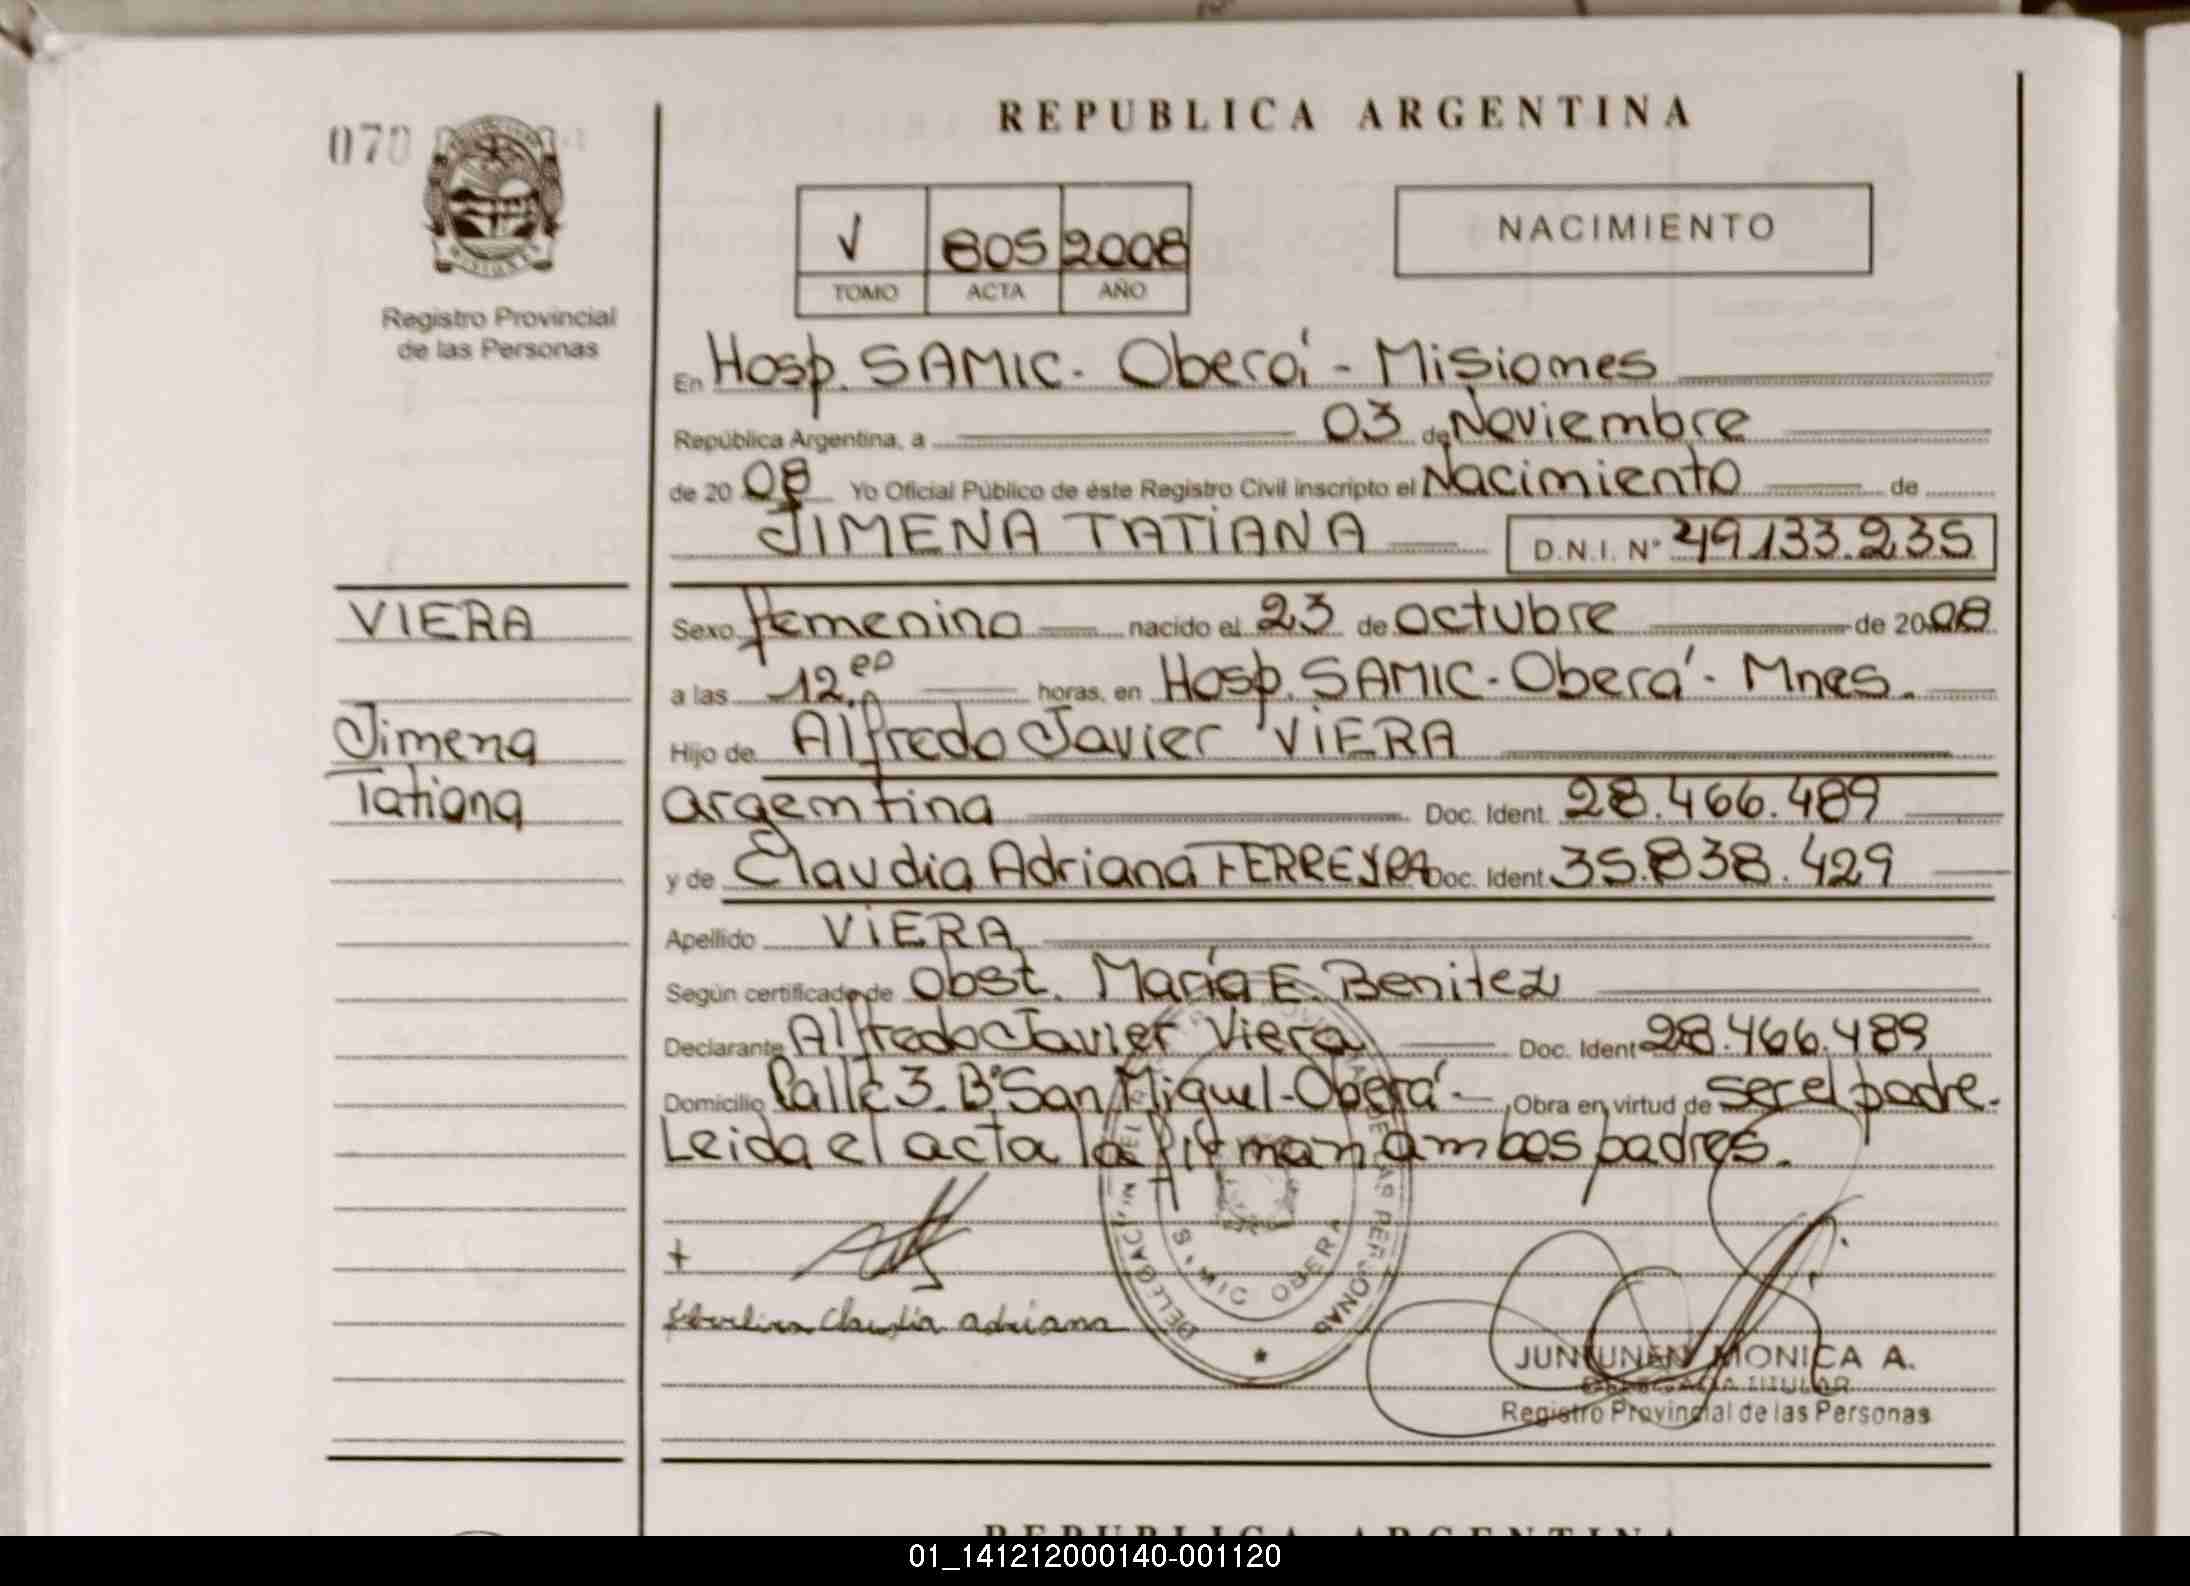 REPUBLICA ARGENTINA
070
V 805 2008
TOMO ACTA AÑO
NACIMIENTO
MISIONES
Registro Provincial
de las Personas
En Hosp. SAMIC - Oberá - Misiones
República Argentina, a 03 de Noviembre
de 2008 Yo Oficial Público de éste Registro Civil inscripto el Nacimiento de
JIMENA TATIANA D.N.I. Nº 49.133.235
VIERA
Jimena
Tatiana
Sexo femenino nacido el 23 de octubre de 2008
a las 12.00 horas, en Hosp. SAMIC - Oberá - Mnes.
Hijo de Alfredo Javier VIERA
argentina Doc. Ident. 28.466.489
y de Claudia Adriana FERREYRA Doc. Ident. 35.838.429
Apellido VIERA
Según certificado de Obst. María E. Benitez
Declarante Alfredo Javier Viera Doc. Ident 28.466.489
Domicilio Calle 3. Bº San Miguel - Oberá - Obra en virtud de ser el padre.
Leida el acta la firman ambos padres.
+
Claudia adriana
DELEGACION DE LAS PERSONAS
SAMIC OBERA
JUNTUNEN MONICA A.
DELEGADA TITULAR
Registro Provincial de las Personas
REPUBLICA ARGENTINA
01_141212000140-001120